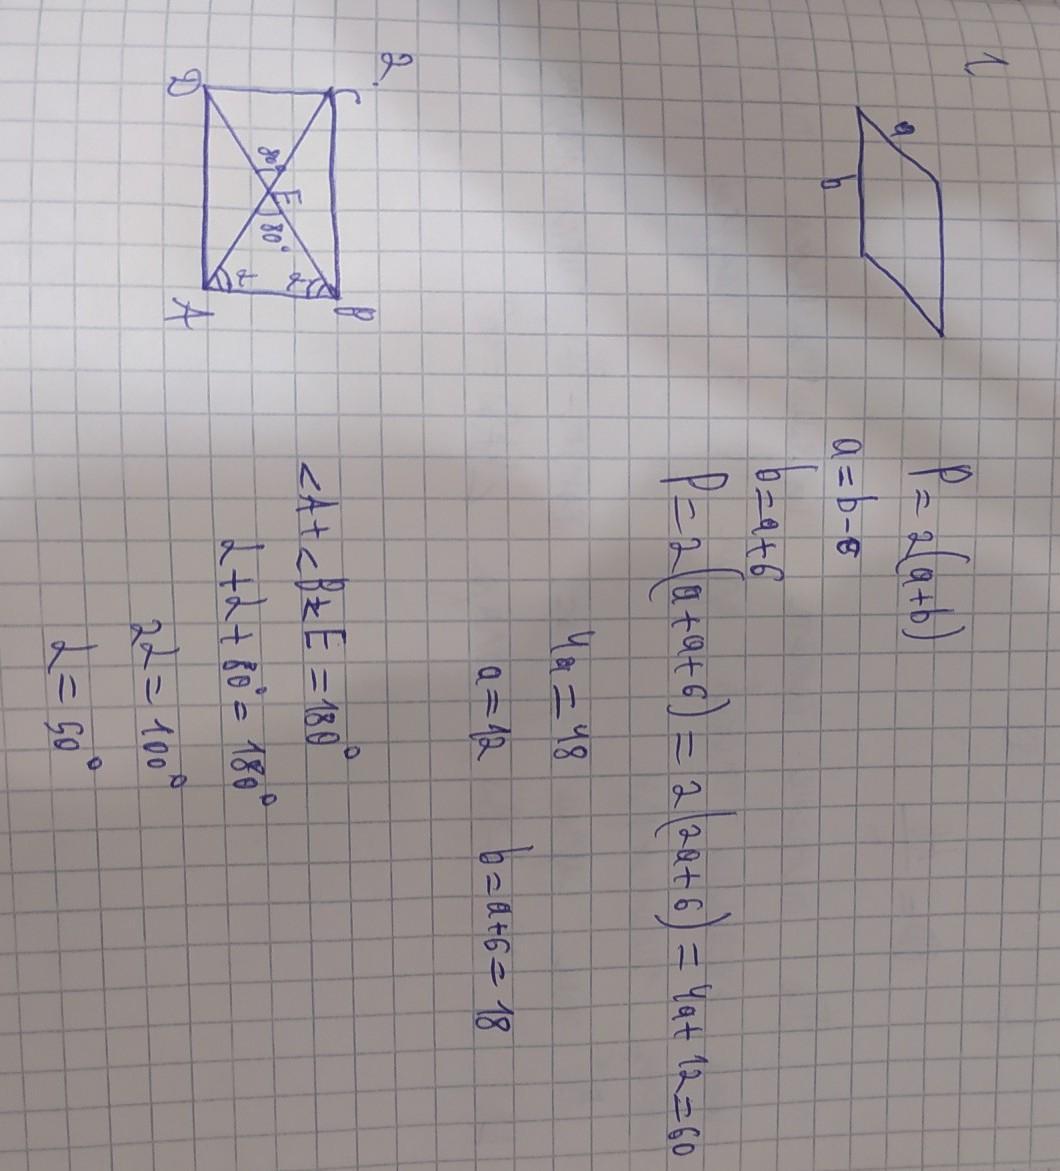 1
a
b
P = 2(a+b)
a = b-6
b = a+6
P = 2(a+a+6) = 2(2a+6) = 4a+12=60
4a = 48
a = 12 b = a+6 = 18
2.
D C
80°
E
80°
α α
A B
<A+<B+E = 180°
α+α+80° = 180°
2α = 100°
α = 50°